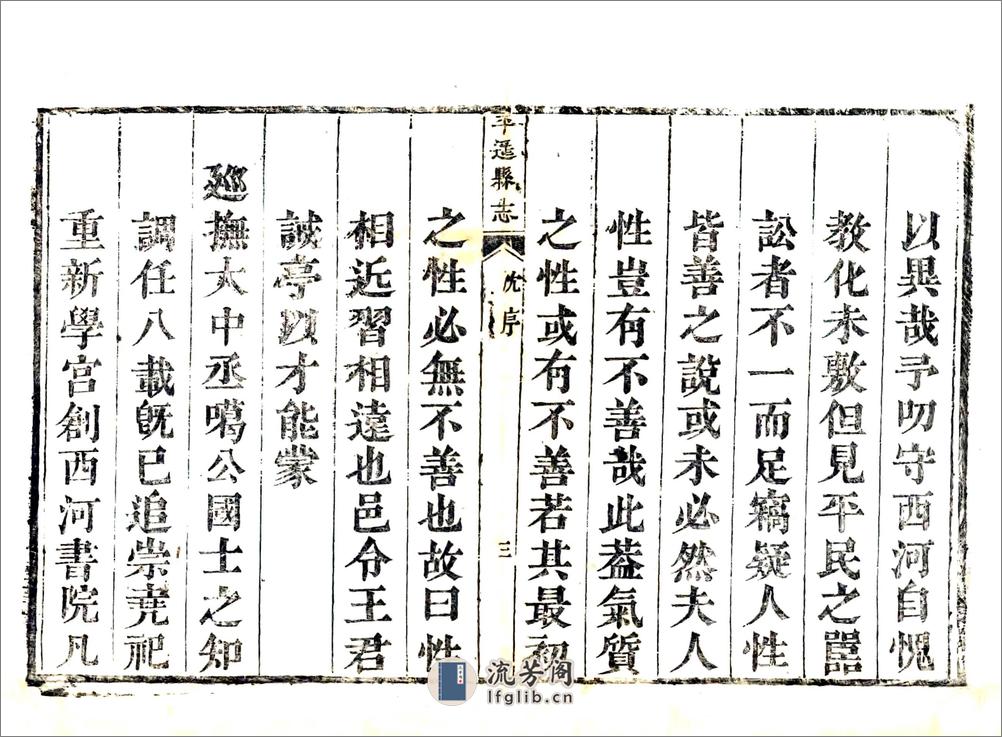 以異哉予叨守西河自愧
教化未敷但見平民之嚚
訟者不一而足竊疑人性
皆善之說或未必然夫人
性豈有不善哉此葢氣質
之性或有不善若其最初
平遥縣志
沈序
三
之性必無不善也故曰性
相近習相遠也邑令王君
誠亭以才能蒙
廵撫大中丞噶公國士之知
調任八載旣已追崇堯祀
重新學宮創西河書院凡
流芳阁
lfglib.cn